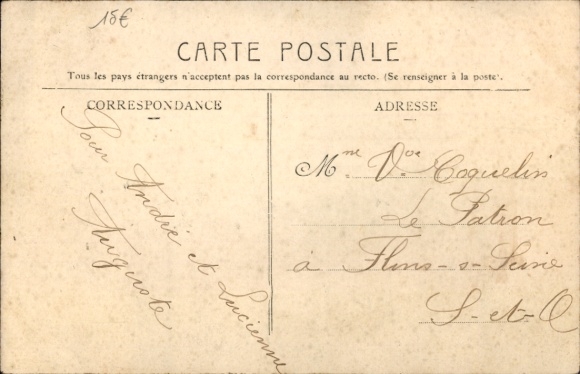 15€
CARTE POSTALE
Tous les pays étrangers n'acceptent pas la correspondance au recto. (Se renseigner à la poste).
CORRESPONDANCE
Pour André et Lucienne
Auguste
ADRESSE
Mme Vve Coquelin
Le Patron
à Flins-s-Seine
S-et-O